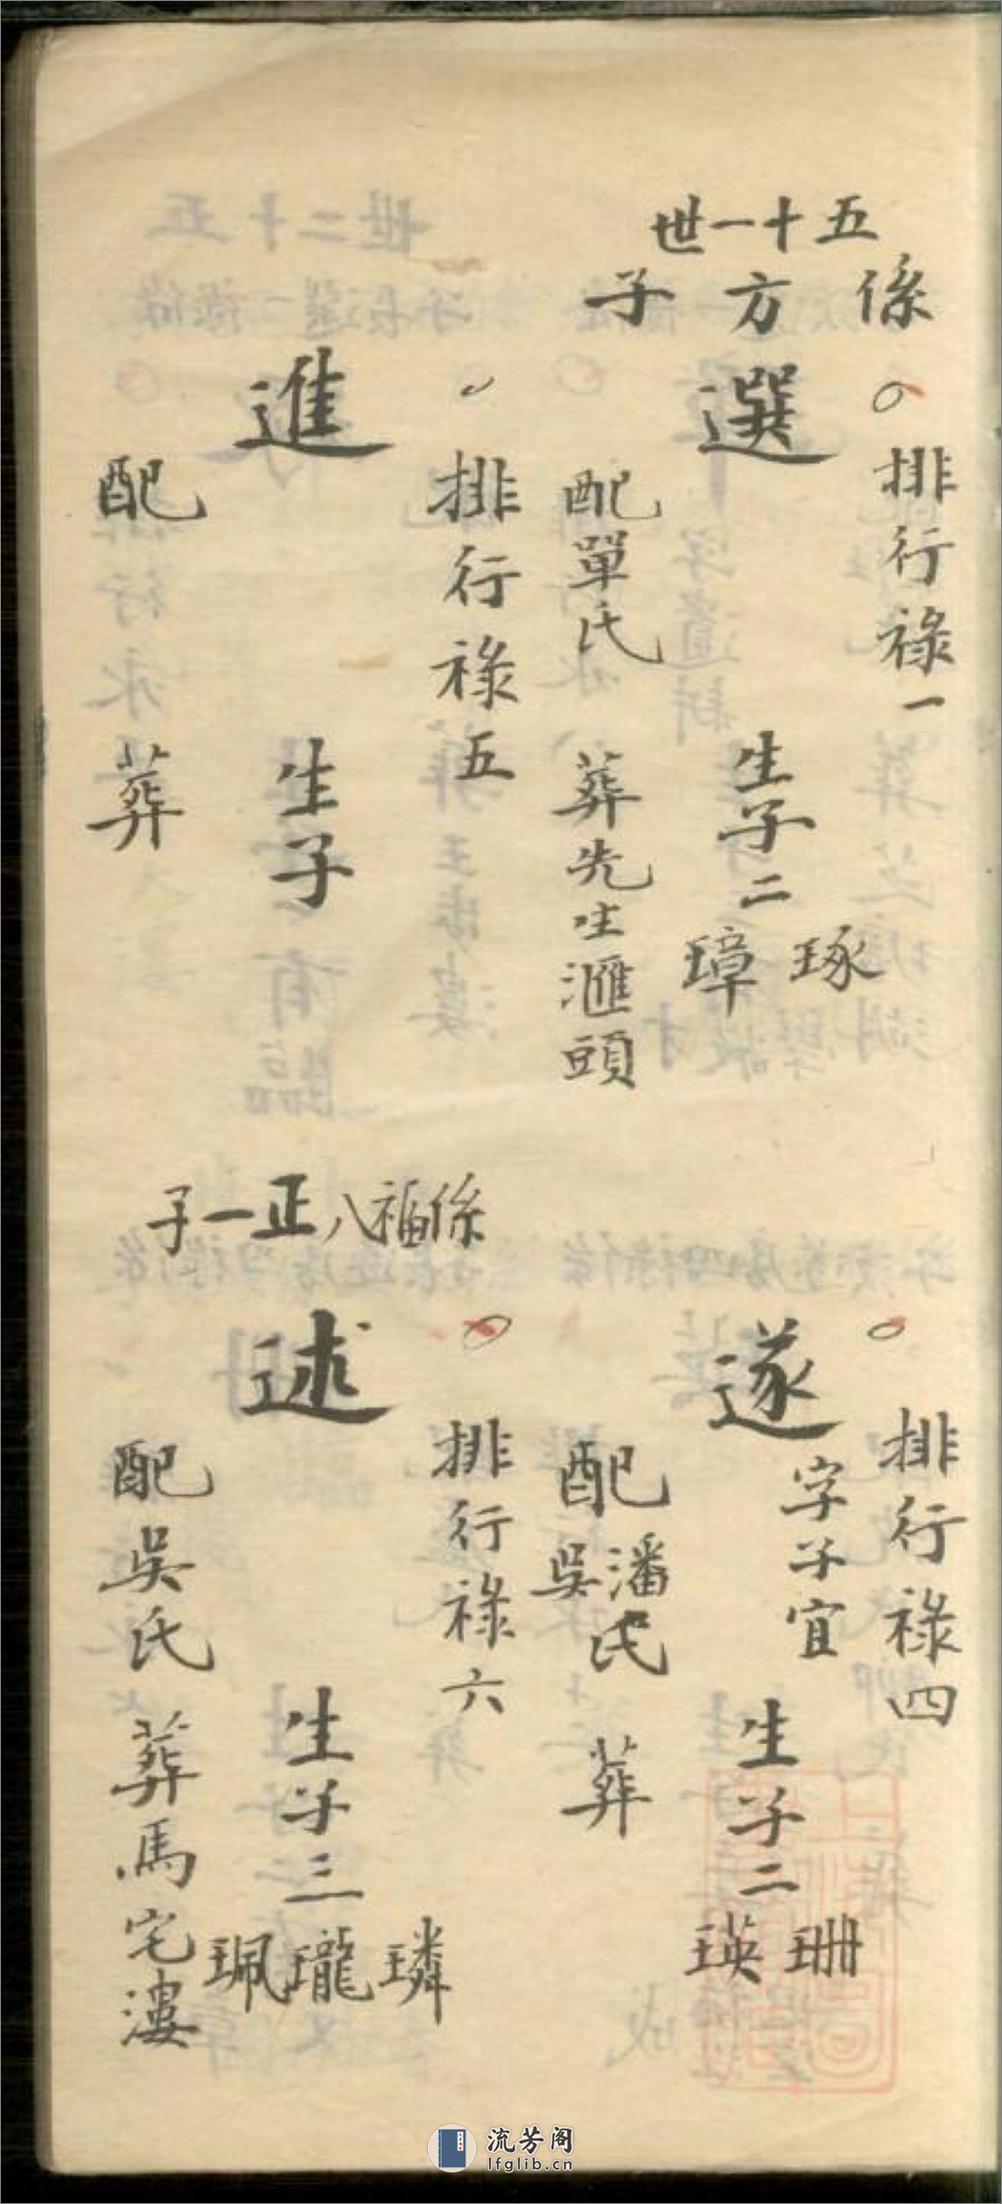 五十一世
係方子
選
排行祿一
配單氏
生子二
琢
璋
葬先生滙頭
進
排行祿五
配
生子
葬
係福八正一子
遂
排行祿四
字子宜
配潘吳氏
生子二
珊
瑛
葬
述
排行祿六
配吳氏
生子三
璘
瓏
珮
葬馬宅漊
流芳阁
lfglib.cn